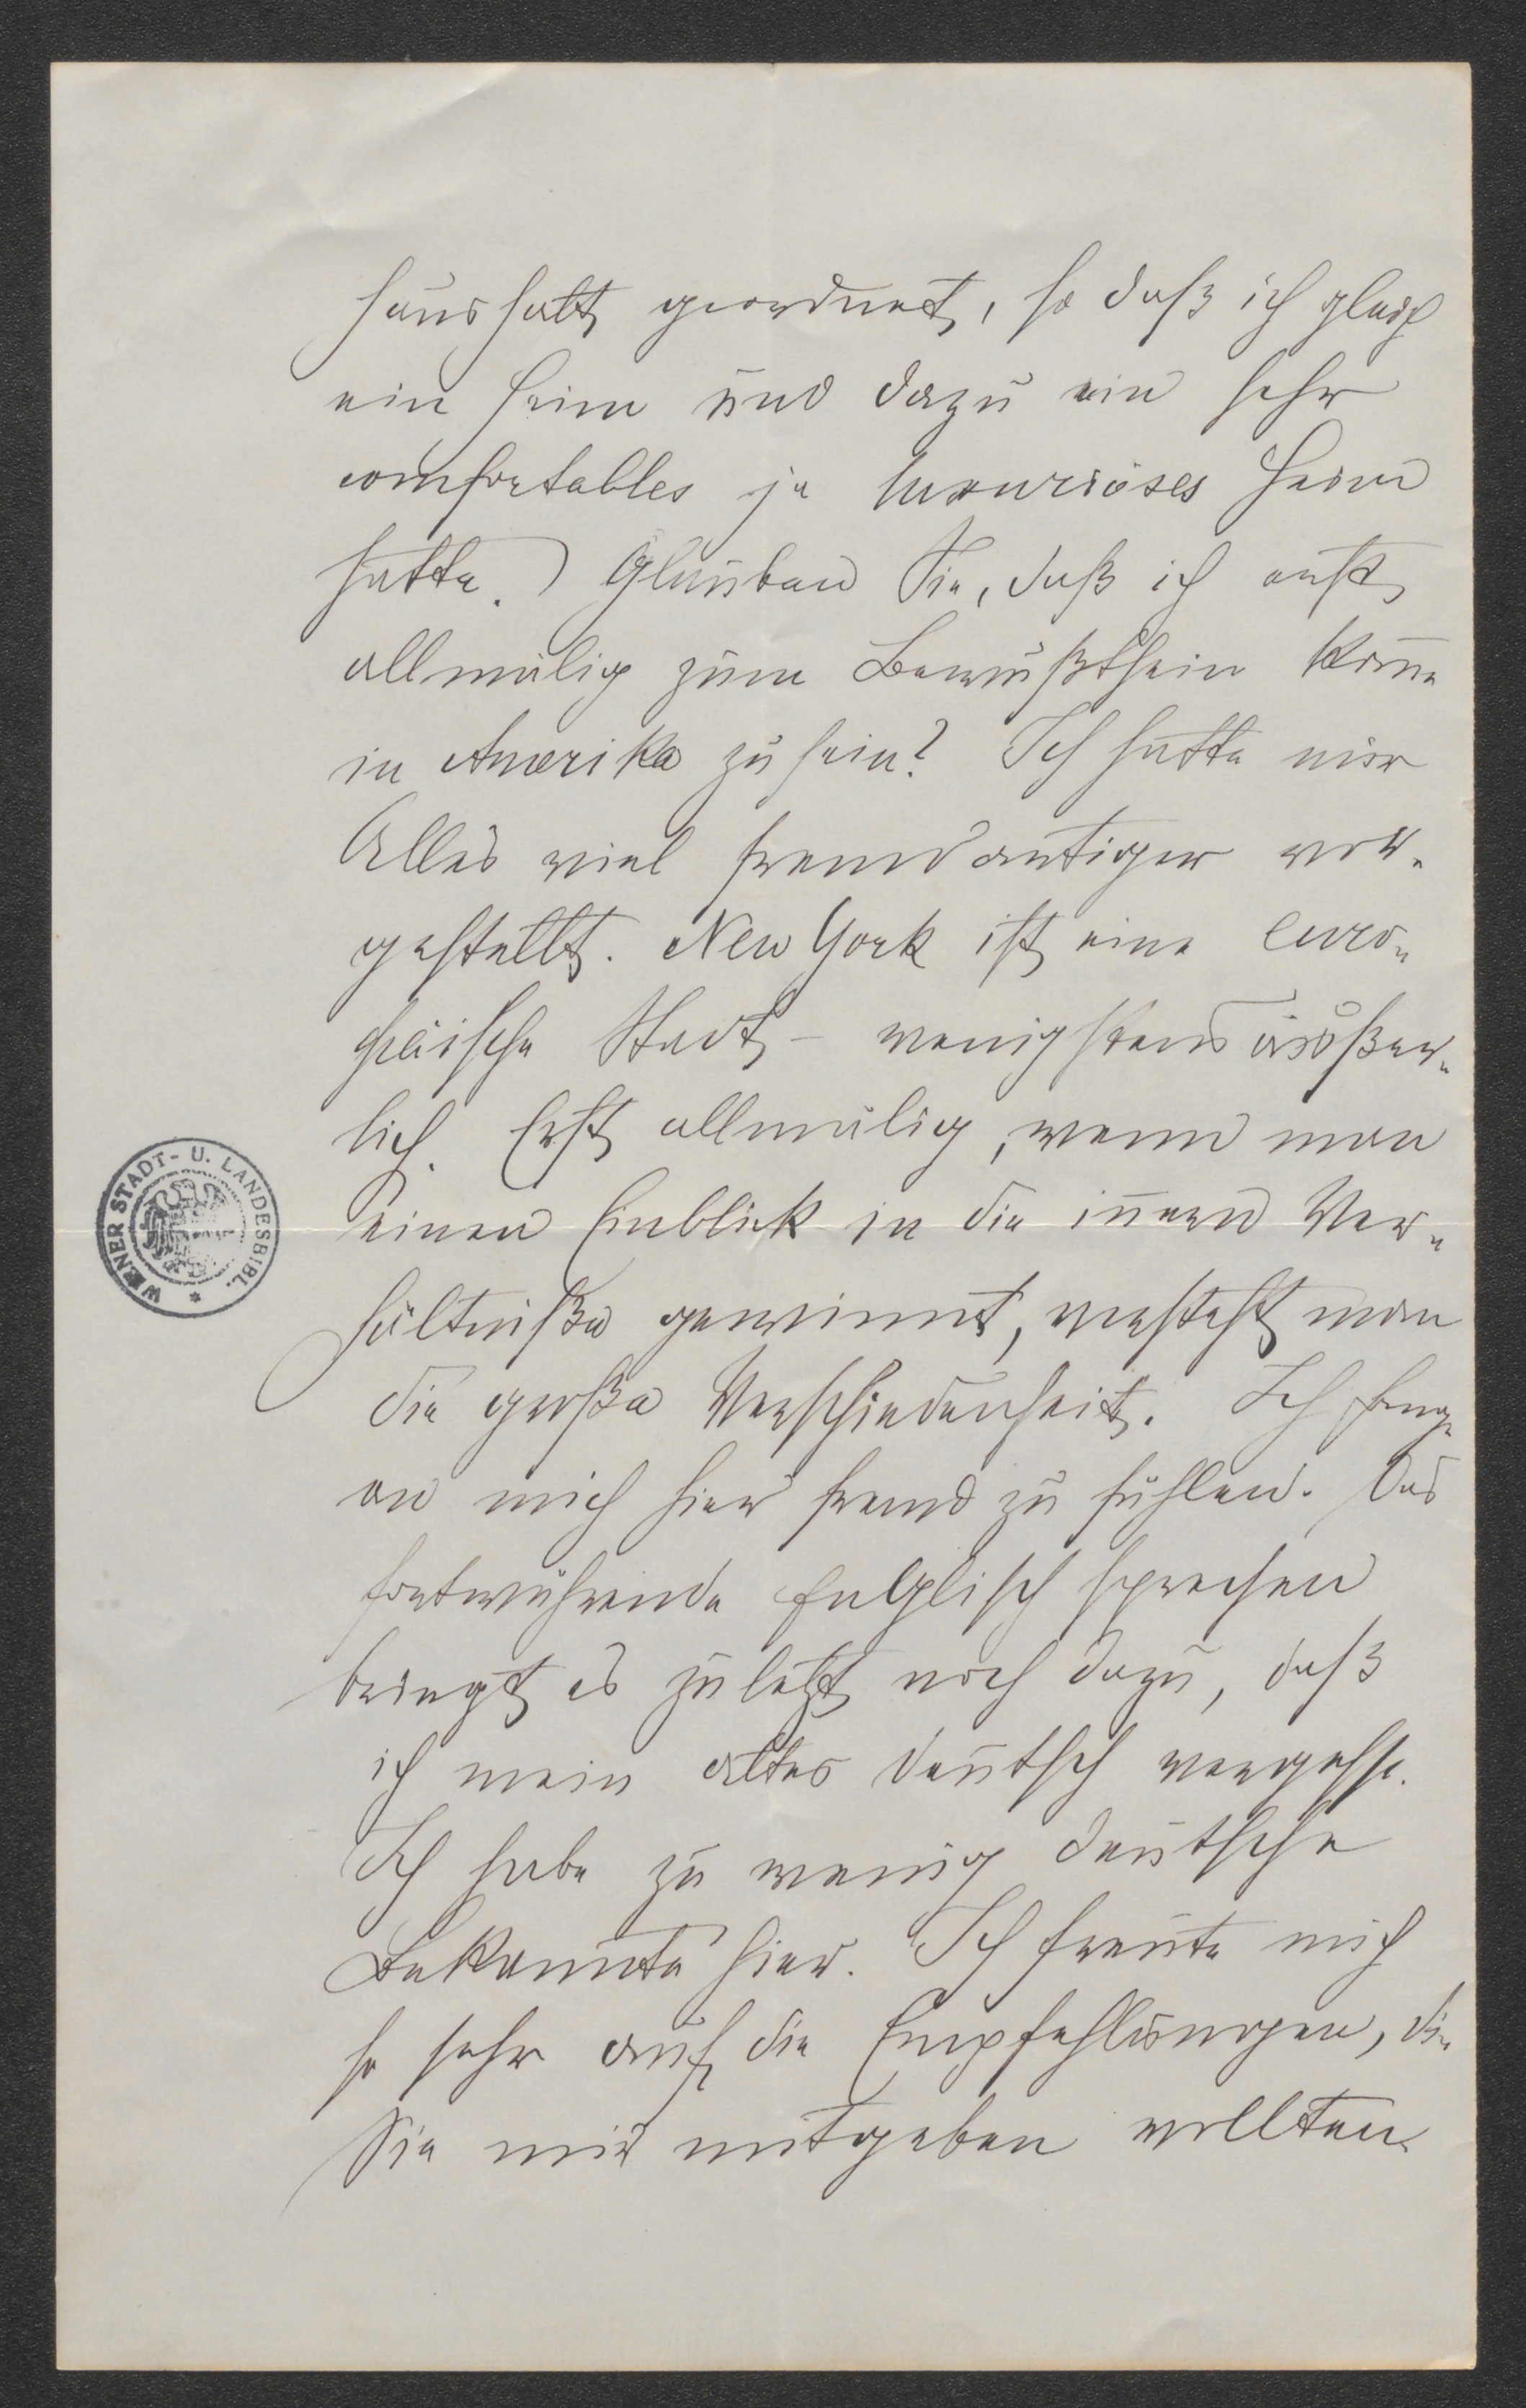 haushalt geordnet, so daß ich gleich
ein Heim und dazu ein sehr
comfortables ja luxuriöses Heim
hatte.) Glauben Sie, daß ich erst
allmälig zum Bewußtsein kom̄e
in Amerika zu sein? Ich hatte mir
Alles viel fremdartiger vor-
gestellt. New York ist eine euro-
päische Stadt – wenigstens äußer-
lich. Erst allmälig, wenn man
einen Einblick in die in̄ern Ver-
hältniße gewinnt, versteht man
die große Verschiedenheit. Ich fange
an mich hier fremd zu fühlen. Das
fortwährende Englisch sprechen
bringt es zuletzt noch dazu, daß
ich mein altes deutsch vergesse.
Ich habe zu wenig deutsche
Bekannte hier. Ich freute mich
so sehr auf die Empfehlungen, die
Sie mir mitgeben wollten.
WIENER STADT- U. LANDESBIBL. *